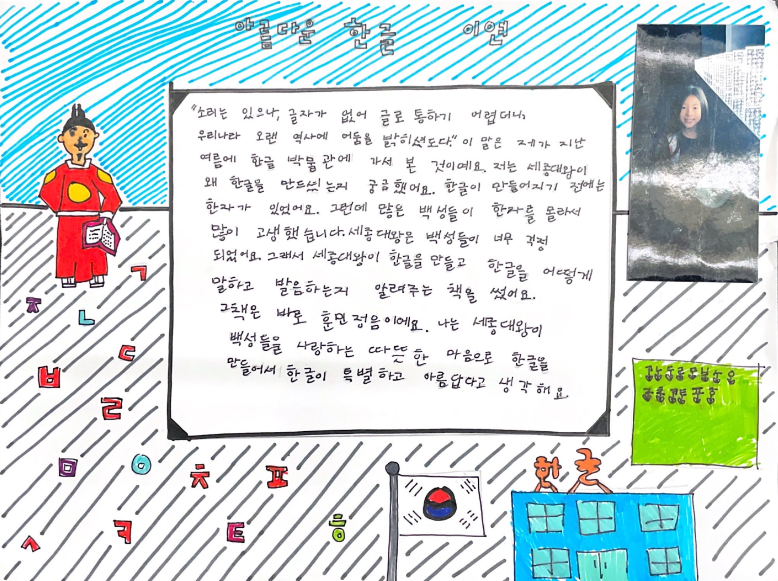 아름다운 한글 이연
"소리는 있으나, 글자가 없어 글로 통하기 어렵더니,
우리나라 오랜 역사에 어둠을 밝히셨도다." 이 말은 제가 지난
여름에 한글 박물관에 가서 본 것이예요. 저는 세종대왕이
왜 한글을 만드셨는지 궁금했어요. 한글이 만들어지기 전에는
한자가 있었어요. 그런데 많은 백성들이 한자를 몰라서
많이 고생했습니다. 세종대왕은 백성들이 너무 걱정
되었어요. 그래서 세종대왕이 한글을 만들고 한글을 어떻게
말하고 발음하는지 알려주는 책을 썼어요.
그책은 바로 훈민정음이에요. 나는 세종대왕이
백성들을 사랑하는 따뜻한 마음으로 한글을
만들어서 한글이 특별하고 아름답다고 생각해요.
ㄱ
ㅈ ㄴ
ㄷ
ㅂ
ㄹ
ㅁ ㅇ ㅊ ㅍ
ㅅ ㅋ ㅌ ㅎ
한글